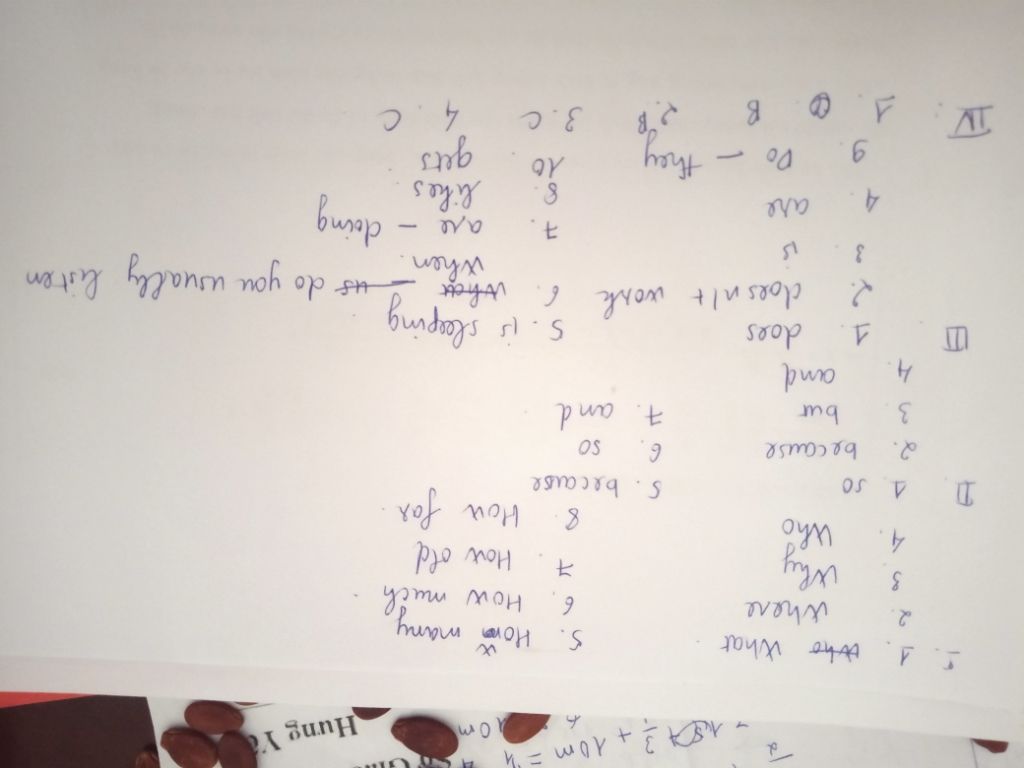 Hưng Yê
I. 1. Who What. 5. How many
2. Where 6. How much.
3. Why 7. How old
4. Who 8. How far.
II. 1 so 5. because
2. because 6. so
3. but 7. and
4. and
III 1. does 5. is sleeping
2. doesn't work 6. What - us do you usually listen
When.
3. is 7. are - doing
4. are 8. likes.
9. Do - they 10. gets
IV. 1. B 2. B 3. C 4. C